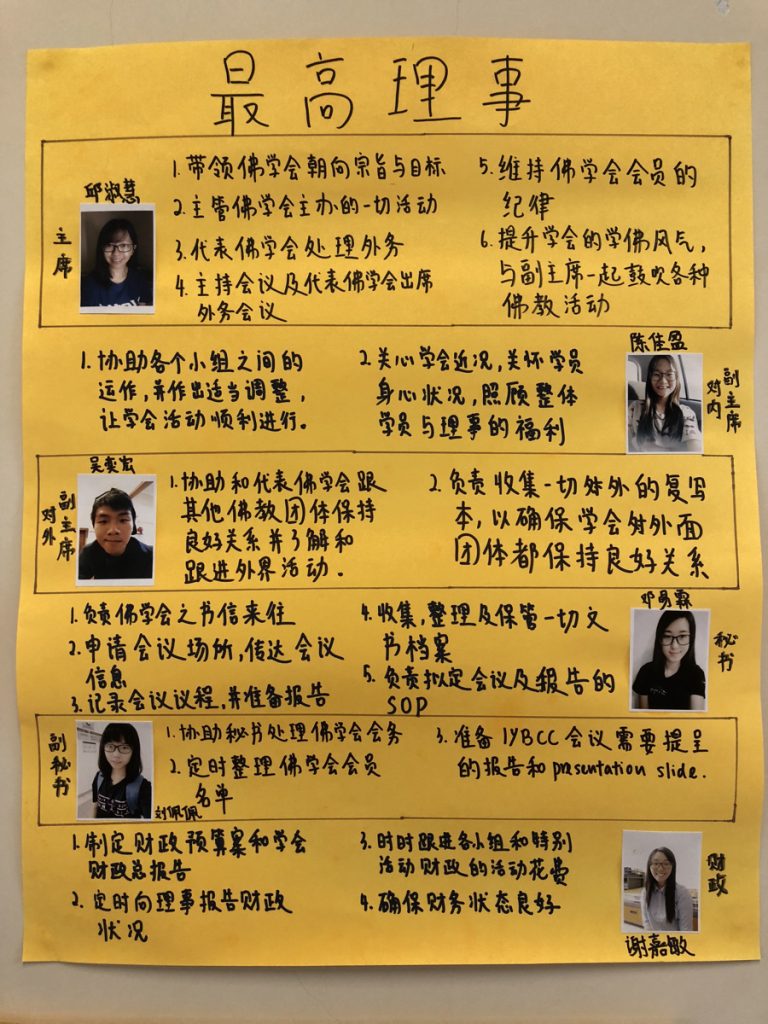 最高理事
邱淑慧
主席
1. 带领佛学会朝向宗旨与目标
2. 主管佛学会主办的一切活动
3. 代表佛学会处理外务
4. 主持会议及代表佛学会出席
外务会议
5. 维持佛学会会员的
纪律
6. 提升学会的学佛风气,
与副主席一起鼓吹各种
佛教活动
1. 协助各个小组之间的
运作,并作出适当调整,
让学会活动顺利进行。
2. 关心学会近况,关怀学员
身心状况,照顾整体
学员与理事的福利
陈佳盈
副主席
对内
吴奕宏
副主席
对外
1. 协助和代表佛学会跟
其他佛教团体保持
良好关系并了解和
跟进外界活动.
2. 负责收集一切对外的复写
本,以确保学会对外面
团体都保持良好关系
1. 负责佛学会之书信来往
2. 申请会议场所,传达会议
信息
3. 记录会议议程,并准备报告
4. 收集,整理及保管一切文
书档案
5. 负责拟定会议及报告的
SOP
邓易霖
秘书
副秘书
刘佩佩
1. 协助秘书处理佛学会会务
2. 定时整理佛学会会员
名单
3. 准备IYBCC会议需要提呈
的报告和presentation slide.
1. 制定财政预算案和学会
财政总报告
2. 定时向理事报告财政
状况
3. 时时跟进各小组和特别
活动财政的活动花费
4. 确保财务状态良好
财政
谢嘉敏